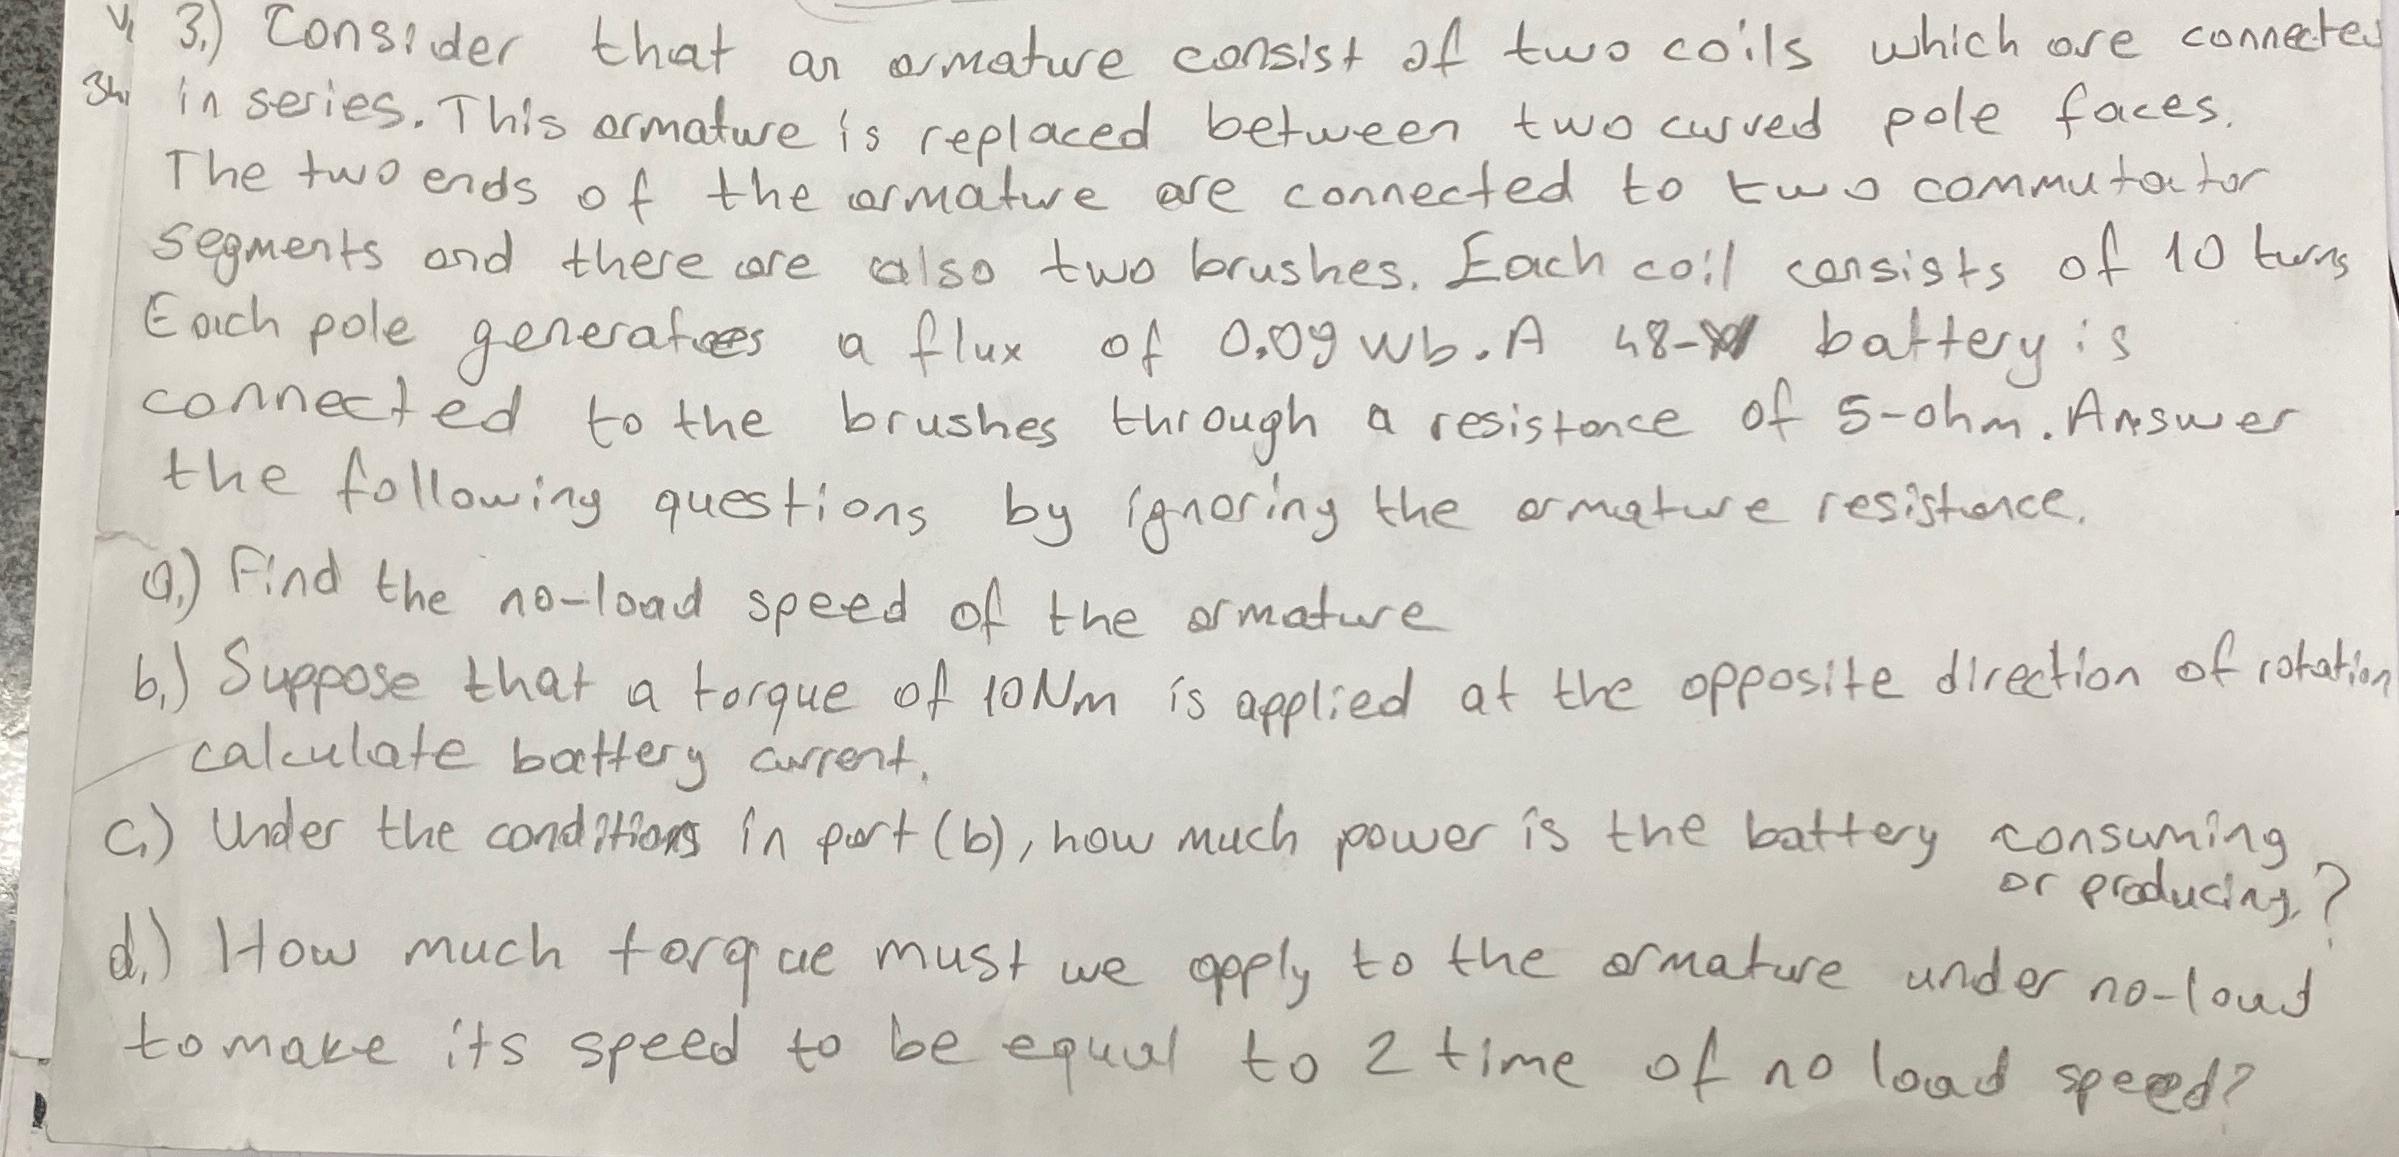 3.) Consider that an armature consist of two coils which are connected
in series. This armature is replaced between two curved pole faces.
The two ends of the armature are connected to two commutator
segments and there are also two brushes. Each coil consists of 10 turns
Each pole generates a flux of 0.09 wb. A 48-V battery is
connected to the brushes through a resistance of 5-ohm. Answer
the following questions by ignoring the armature resistance.
a.) Find the no-load speed of the armature
b.) Suppose that a torque of 10Nm is applied at the opposite direction of rotation
calculate battery current.
c.) Under the conditions in part (b), how much power is the battery consuming
or producing.?
d.) How much torque must we apply to the armature under no-load
to make its speed to be equal to 2 time of no load speed?